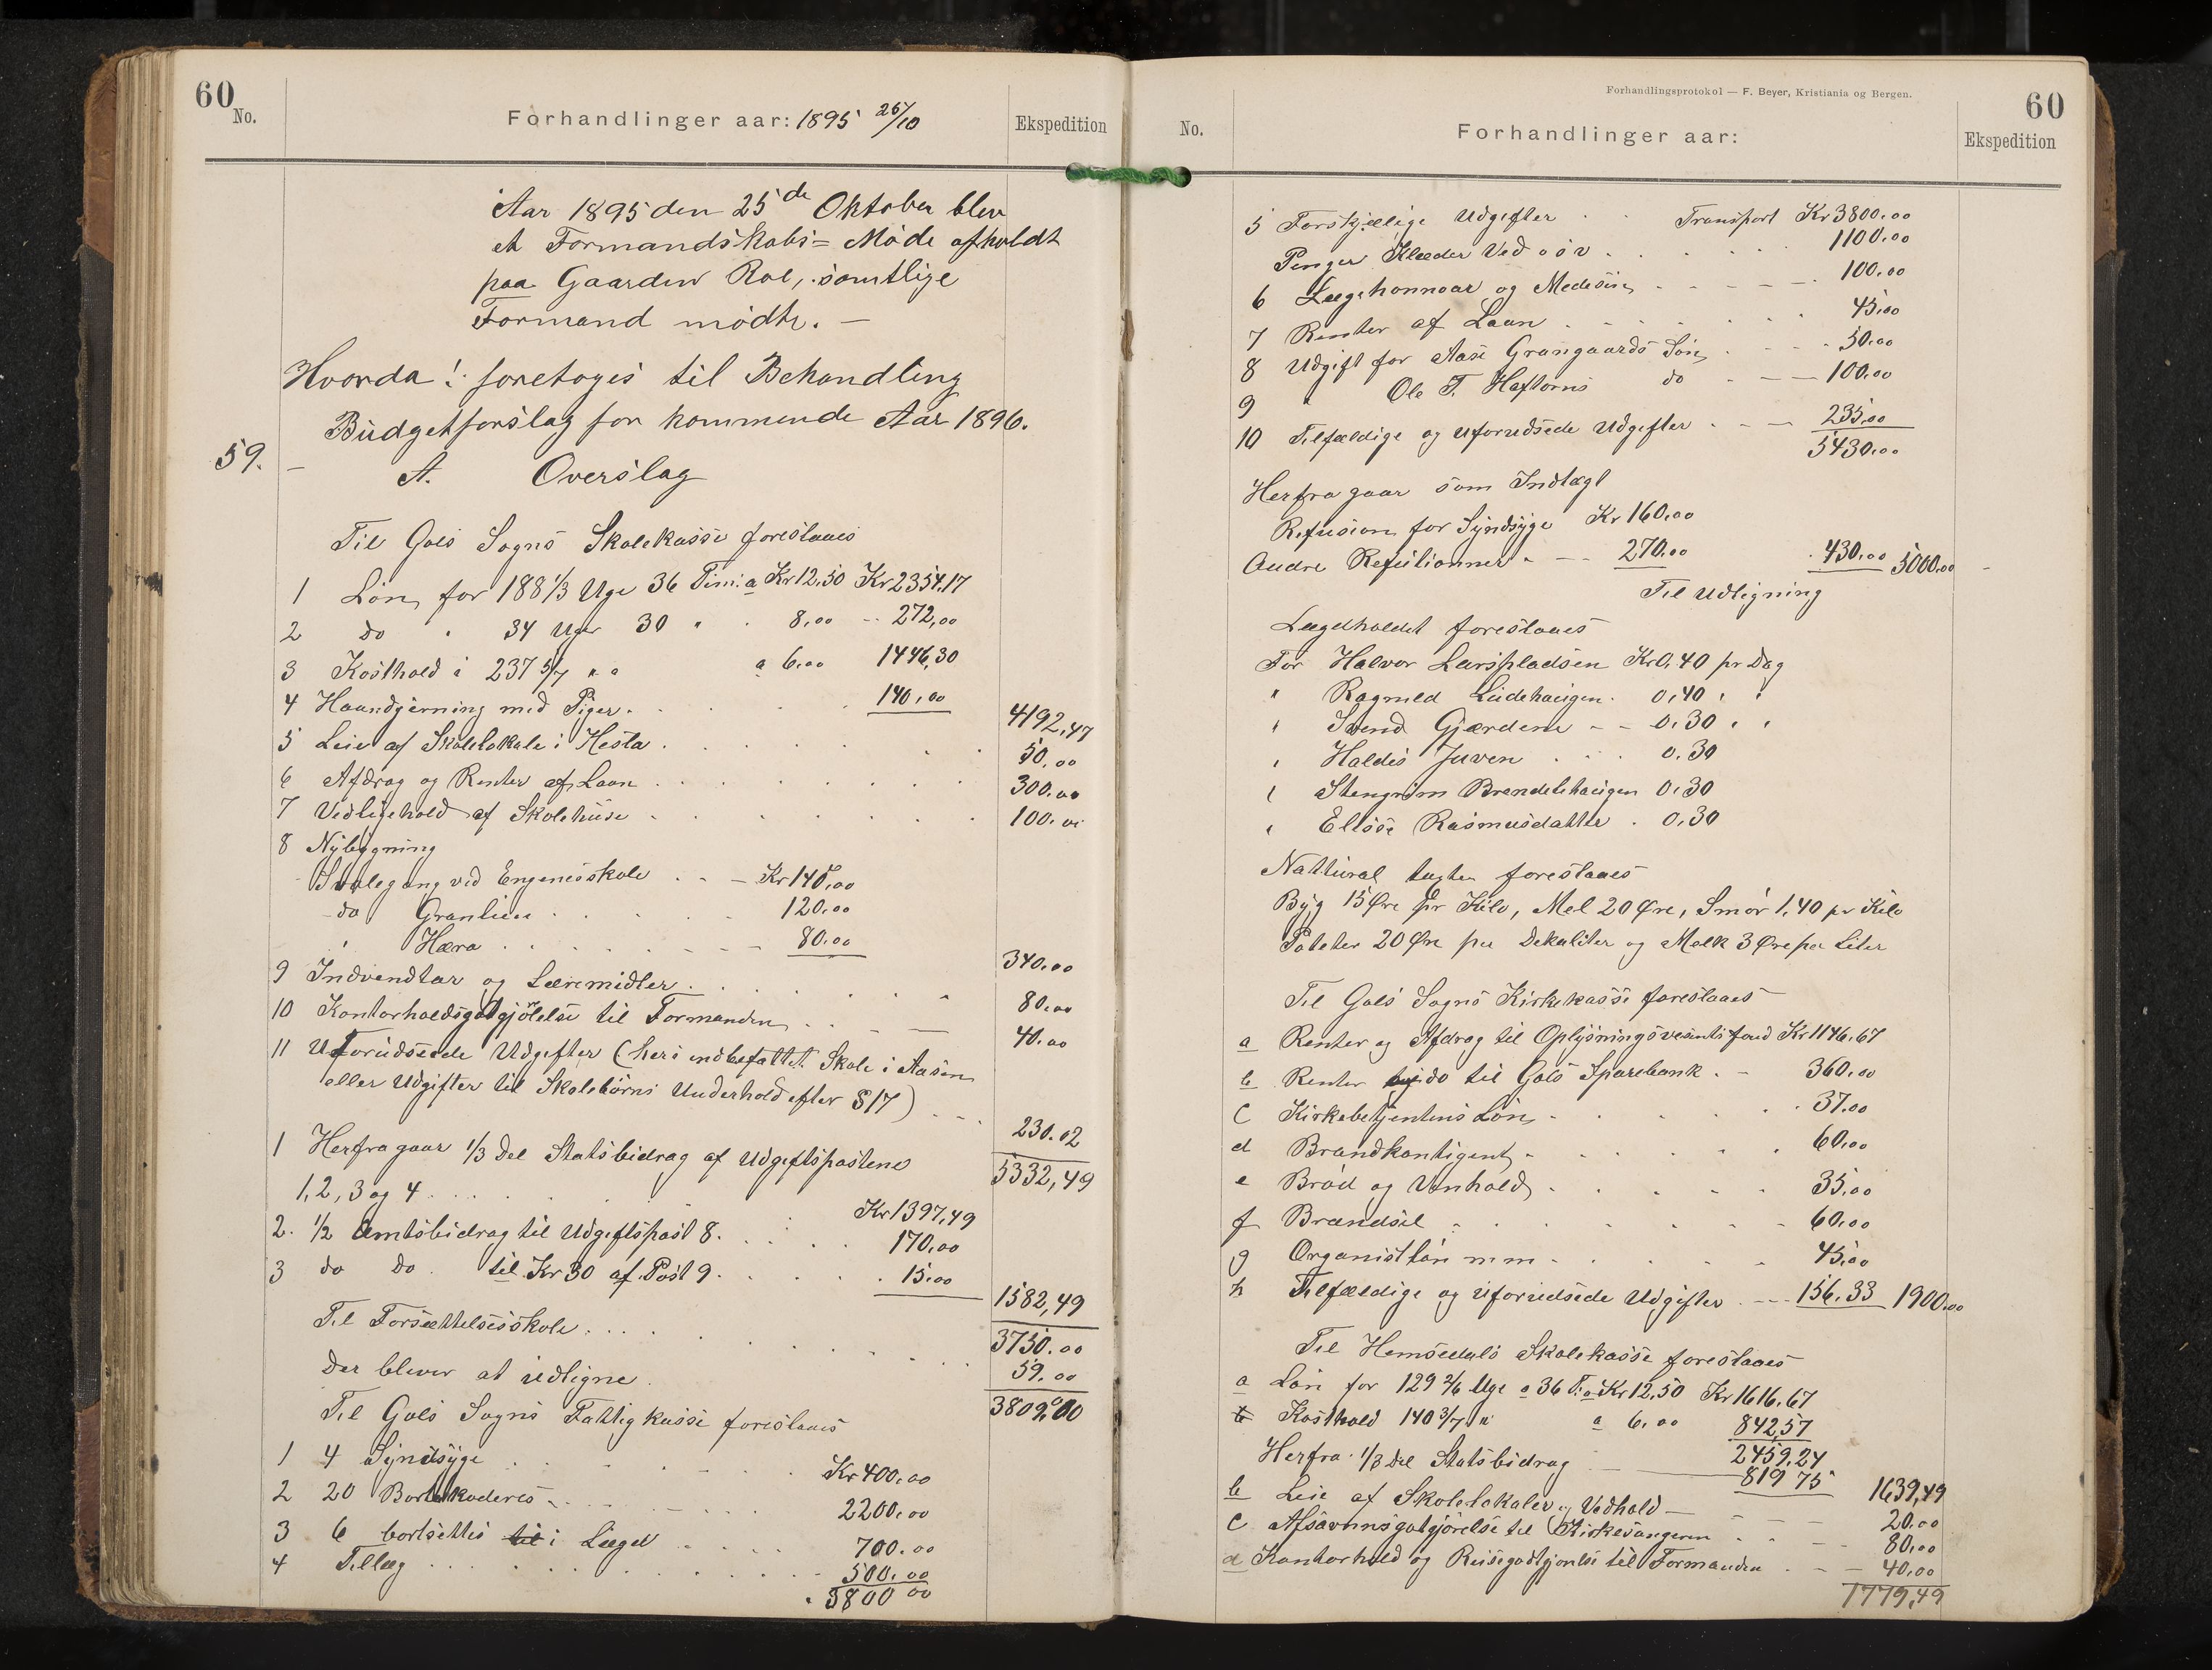 60
No.
Forhandlinger aar: 1895 25/10
Ekspedition
Aar 1895 den 25de Oktober blev
et Formandskabs= Møde afholdt
paa Gaarden Roe, samtlige
Formænd mødte. —
Hvorda: foretoges til Behandling
Büdgetforslag for kommende Aar 1896.
59. —
A. Overslag
Til Gols Sogns Skolekasse foreslaaes
1 Løn for 188 1/3 Uge 36 Tim: a Kr 12,50 Kr 2354,17
2 do " 34 Uger 30 " 8,00 -- 272,00
3 Kosthold i 237 5/7 " a 6,00 1446,30
4 Haandgjerning med Piger . 140,00 4192,47
5 Leie af Skolelokale i Hesla . 50,00
6 Afdrag og Renter af Laan . 300,00
7 Vedligehold af Skolehuse . 100,00
8 Nybygning
Svalegang ved Engeneskole . . — Kr 140,00
do Granlien . 120,00
" Hæra . 80,00 340,00
9 Indvendtar og Læremidler . 80,00
10 Kontorholdsgodtgjørelse til Formanden . 40,00
11 Uforudseede Udgifter (heri indbefattet Skole i Aasen
eller Udgifter til Skolebørns Underhold efter § 17) . 230.02
5332,49
1 Herfra gaar 1/3 Del Statsbidrag af Udgiftsposterne
1, 2, 3 og 4 . Kr 1397,49
2. 1/2 Amtsbidrag til Udgiftspost 8 . 170,00
3 do do . til Kr 30 af Post 9 . 15,00 1582,49
3750.00
Til Forsættelsesskole . 59.00
Der bliver at üdligne . 3809,00
Til Gols Sogns Fattigkasse foreslaaes
1 4 Syndsyge . Kr 400,00
2 20 Bortakoderes . 2200,00
3 6 bortsettes til i Lægd . 700.00
4 Tillæg . 500,00
3800 00
Forhandlingsprotokol — F. Beyer, Kristiania og Bergen.
No.
Forhandlinger aar:
60
Ekspedition
Transport Kr 3800,00
5 Forskjælige Udgifter
Penger Klæder Ved o s v . 1100,00
6 Lægehonnoar og Medesin . 100,00
7 Renter af Laan . 45,00
8 Udgift for Aase Grangaards Søn . 50,00
9 " Ole T. Haftorns do . 100,00
10 Tilfældige og uforudsede Udgifter . 235,00
5430,00
Herfra gaar som Indtægt
Refusion for Syndsyge Kr 160,00
Andre Refutionner . — 270.00 430,00 5000,00
Til Udligning
Lægdholdet foreslaaes
For Halvor Larspladsen Kr 0,40 pr Dag
" Ragnild Lüdehaugen . 0,40 " "
" Svend Gjærdene — — 0,30 " "
" Haldis Juven . 0,30
" Stengrim Brendelehaugen 0,30
" Elisse Rasmusdatter . 0,30
Nattüral taxten foreslaaes
Byg 15 Øre pr Kilo, Mel 20 Øre, Smør 1,40 pr Kilo
Poteter 20 Øre per Dekaliter og Melk 3 Øre per Liter
Til Gols Sogns Kirkekasse foreslaaes
a Renter og Afdrag til Oplysningsvesentsfond Kr 1146,67
b Renter og do til Gols Sparebank . — 360,00
c Kirkebetjentens Løn . 37.00
d Brandkontigent . 60,00
e Brød og Vinhold . 35,00
f Brændsel . 60,00
g Organistløn m m . 45,00
h Tilfældige og üforudsede Udgifter . — 156,33 1900,00
Til Hemsedals Skolekasse foreslaaes
a Løn for 129 2/6 Uge a 36 T: a Kr 12,50 Kr 1616,67
b Kosthold 140 3/7 " a 6,00 842,57
2459,24
Herfra 1/3 Del Statsbidrag 819 75 1639,49
b Leie af Skolelokaler og Vedhold — 20.00
c Afsavnsgodtgjørelse til Kirkesangeren . 80,00
d Kontorhold og Reisegodtgjørelse til Formanden . 40,00
1779,49